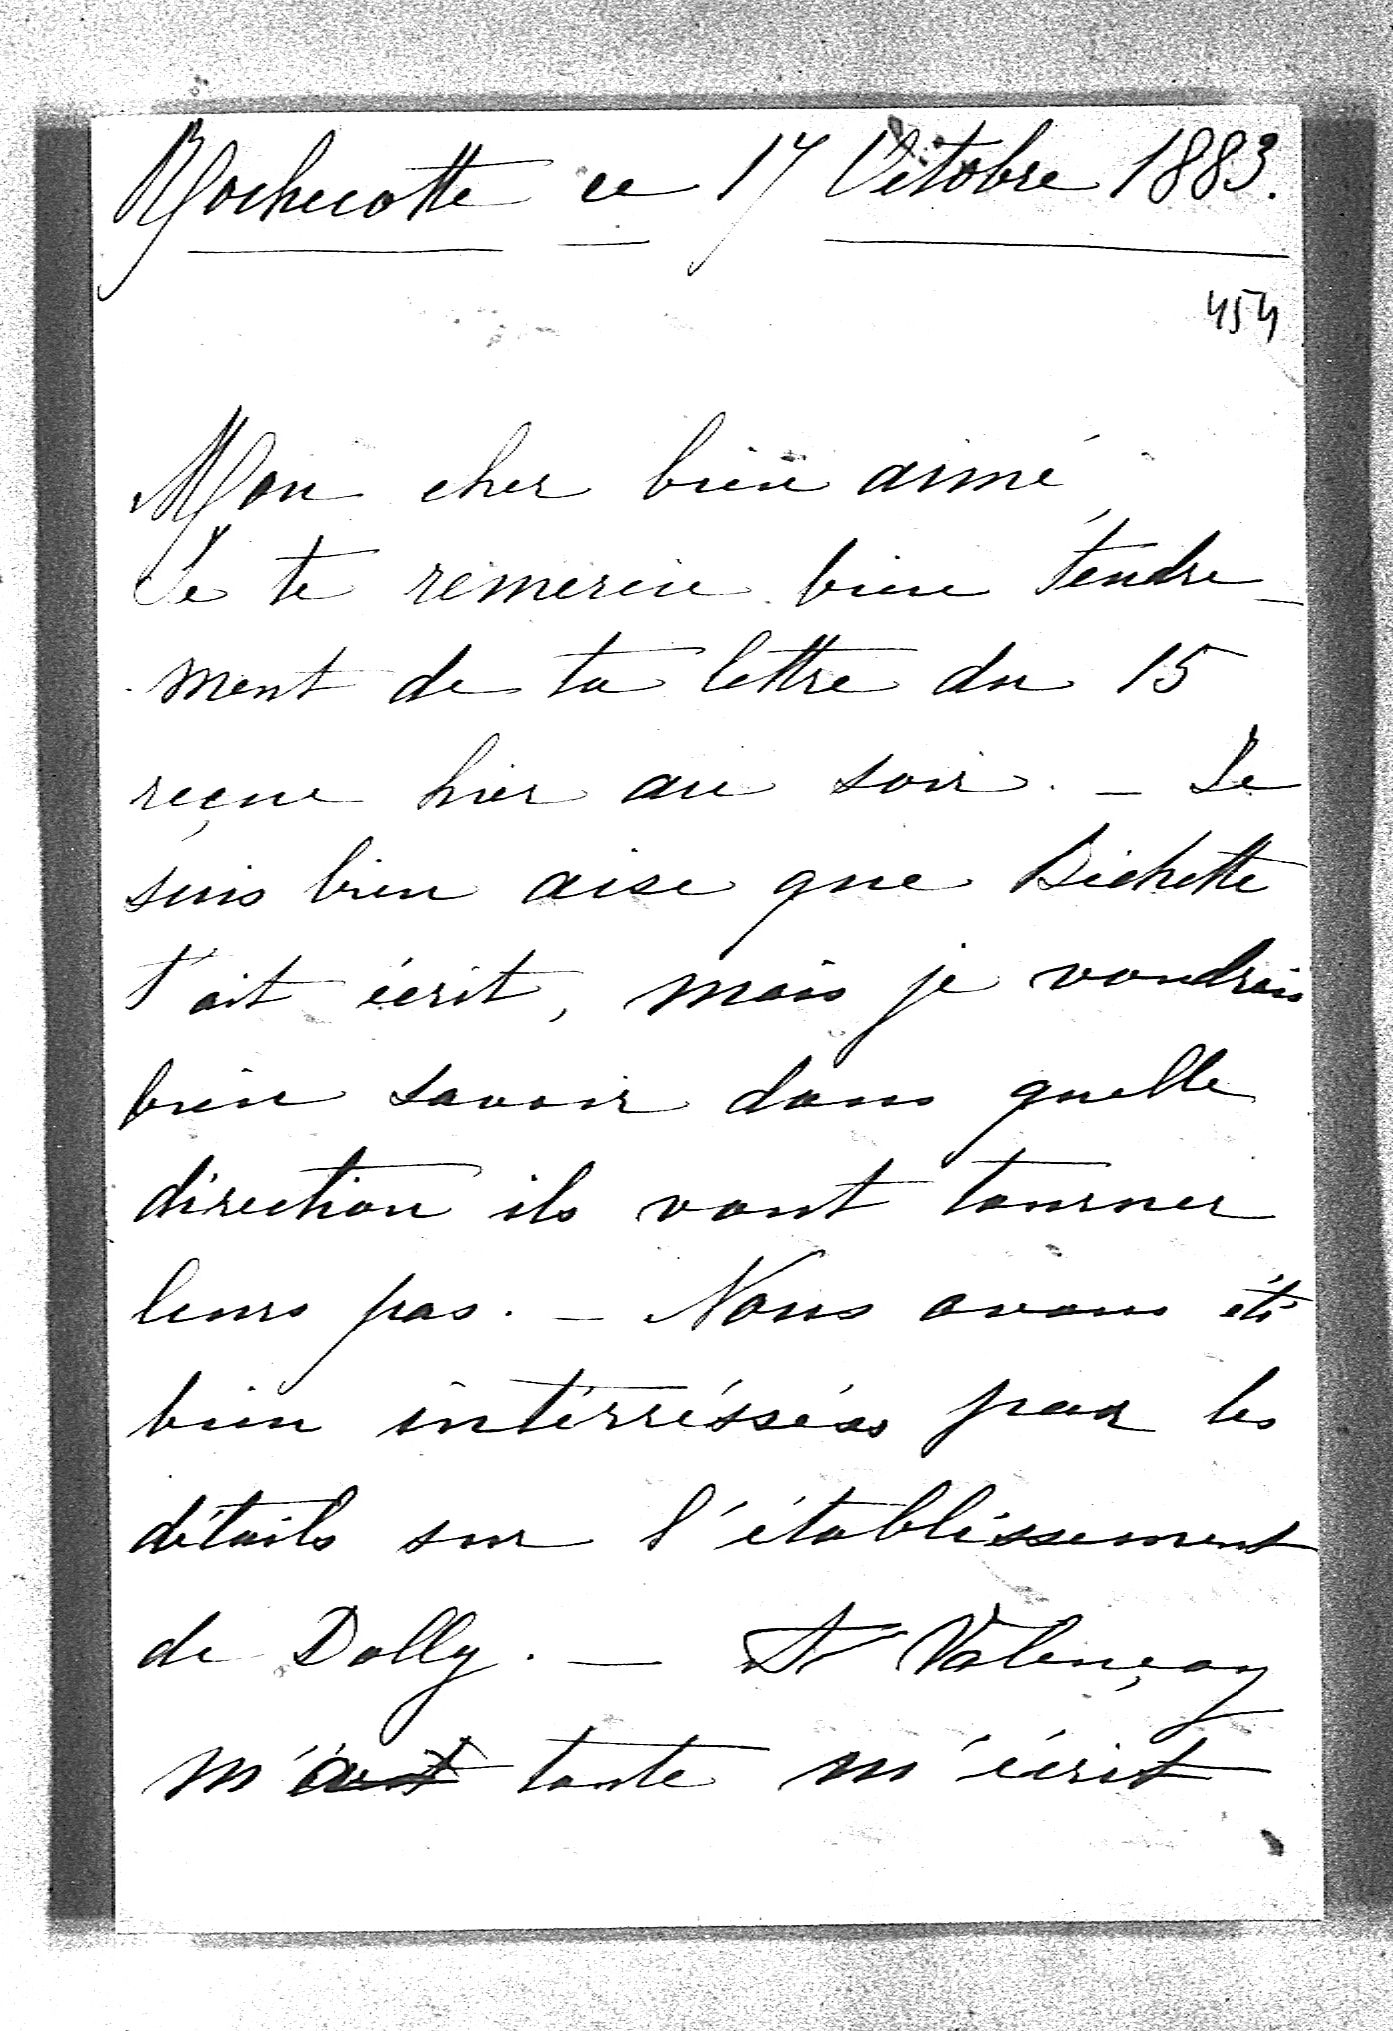 Rochecotte ce 17 Octobre 1883.
454
Mon cher bien aimé,
Je te remercie bien tendre-
ment de ta lettre du 15
reçue hier au soir. - Je
suis bien aise que Bichette
t'ait écrit, mais je voudrais
bien savoir dans quelle
direction ils vont tourner
leurs pas. - Nous avons été
bien intérréssés par les
détails sur l'établissement
de Dolly. - Valençay
tante m'écrit